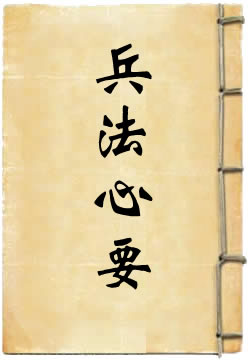 兵法心要